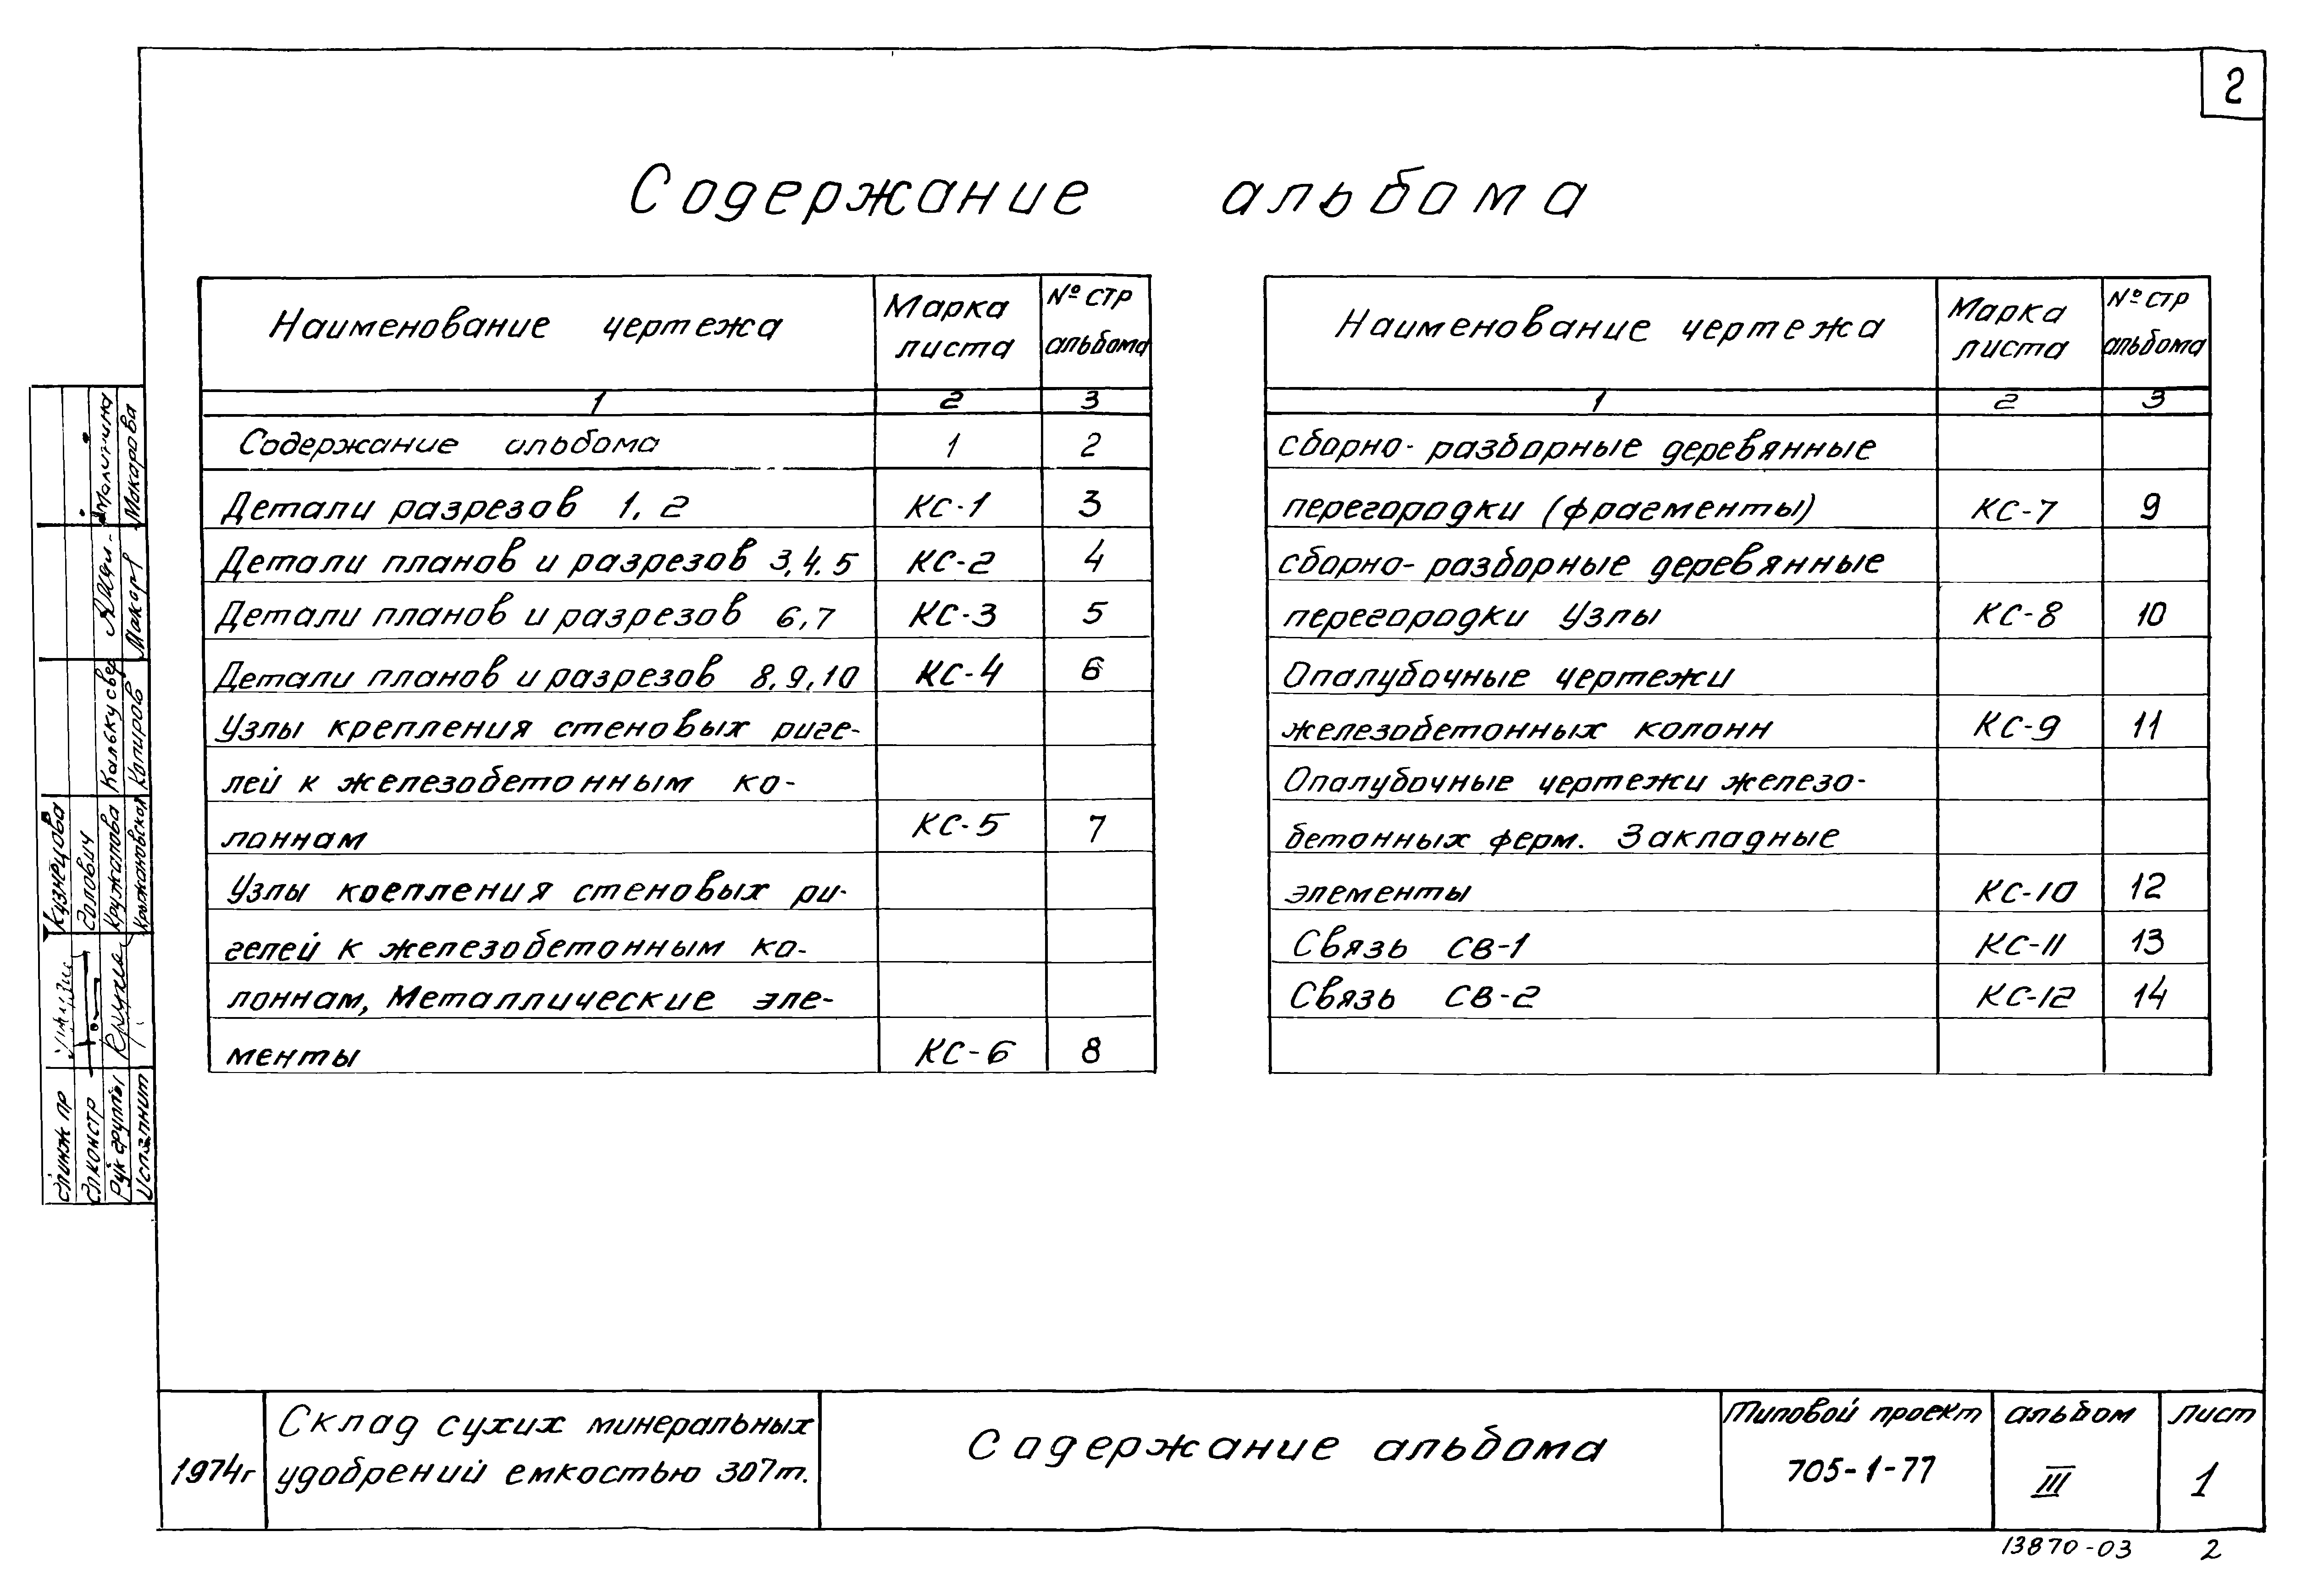 2
Содержание альбома
Наименование чертежа Марка листа № стр альбома
1 2 3
Содержание альбома 1 2
Детали разрезов 1, 2 КС-1 3
Детали планов и разрезов 3,4.5 КС-2 4
Детали планов и разрезов 6,7 КС-3 5
Детали планов и разрезов 8,9,10 КС-4 6
Узлы крепления стеновых риге-
лей к железобетонным ко-
лоннам КС-5 7
Узлы крепления стеновых ри-
гелей к железобетонным ко-
лоннам, Металлические эле-
менты КС-6 8
Наименование чертежа Марка листа № стр альбома
1 2 3
сборно-разборные деревянные
перегородки (фрагменты) КС-7 9
сборно-разборные деревянные
перегородки Узлы КС-8 10
Опалубочные чертежи
железобетонных колонн КС-9 11
Опалубочные чертежи железо-
бетонных ферм. Закладные
элементы КС-10 12
Связь СВ-1 КС-11 13
Связь СВ-2 КС-12 14
Гл инж пр Кузнецова
Гл констр
Рук группы Кружалова Малинина
Исполнит Крыжановская Копиров Макарова
1974г
Склад сухих минеральных
удобрений емкостью 307т.
Содержание альбома
Типовой проект
705-1-77
альбом
III
лист
1
13870-03 2